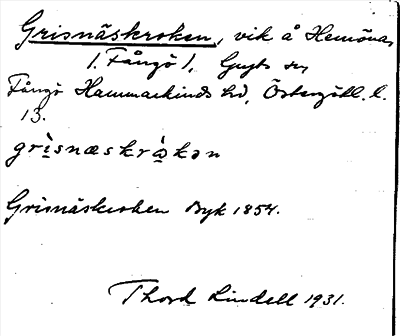 Grisnäskroken, vik å Hemöna,
/. Fångö /.
Fångö Hammarkinds hd, Östergötl. l.
13.
grìsnæskrɷ̀kən
Grisnäskroken Byk 1854.
Thord Lindell 1931.